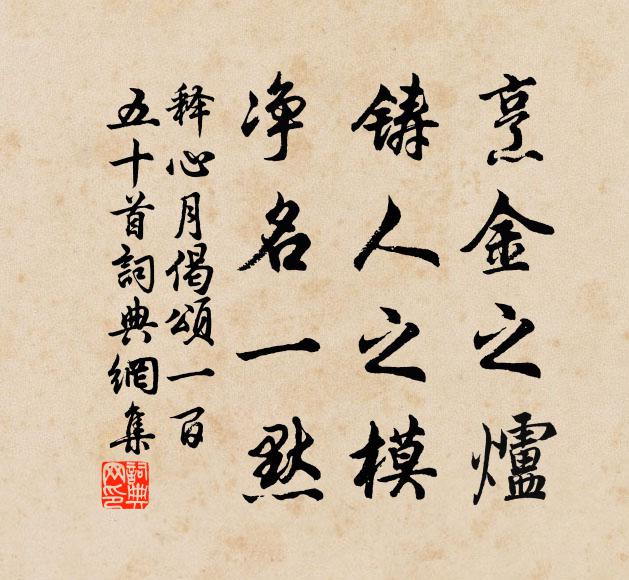 烹金之爐
铸人之模
净名一默
释心月偈頌一百
五十首詞典網集
詞典
网印